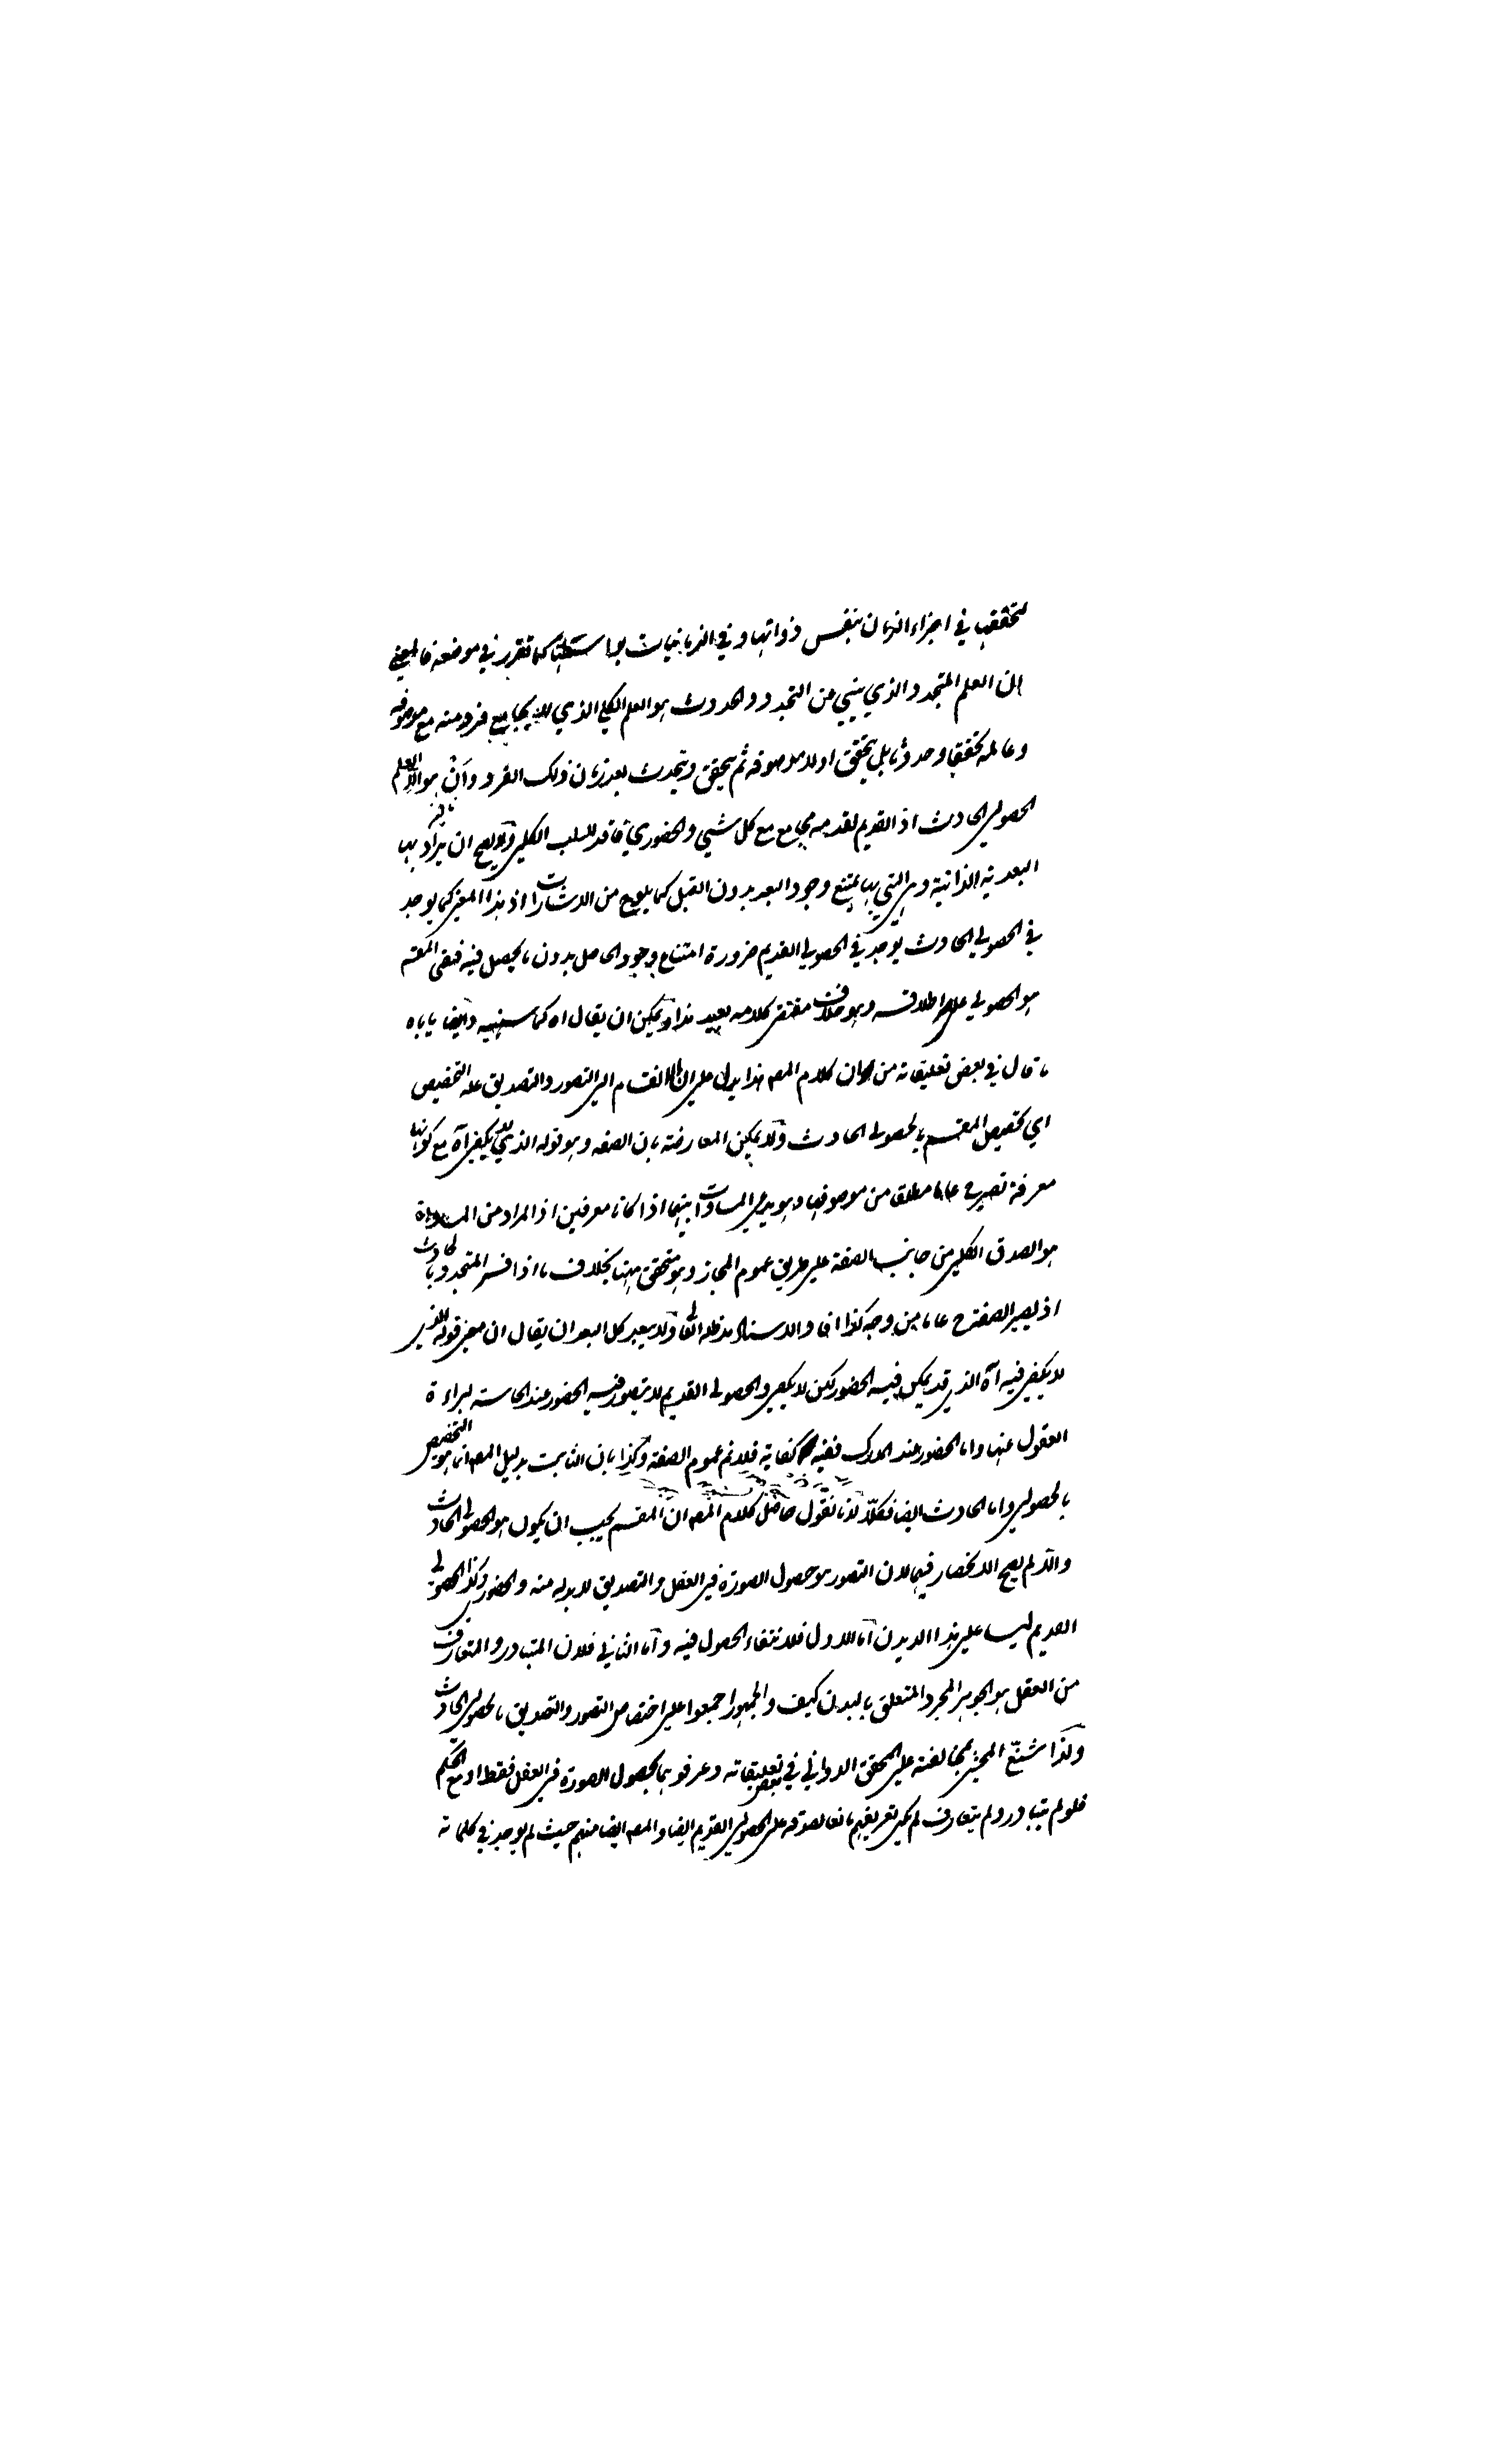 لتحققها في اجزاء الزمان بنفس ذواتها وفي الزمانيات بواسطتها كما تقرر في موضعه فالمعنى
ان العلم المتجدد الذي ينبئ عن التجدد والحدوث هو العلم الكلي الذي لا يجامع فرد منه مع موصوفه
وعالمه تحققا وحدوثا بل يتحقق اولا موصوفه ثم يتحقق ويحدث بعد زمان ذلك الفرد وان هو الا العلم
الحصولي الحادث اذ القديم لقدمه مجامع مع كل شيء والحضوري فاقد للسلب الكلي ولا يصح ان يراد بها
البعدية الذاتية وهي التي بها يمتنع وجود البعد بدون القبل كما يلوح من الاشارات اذ هذا المعنى كما يوجد
في الحصولي الحادث يوجد في الحصولي القديم ضرورة امتناع وجود الحاصل بدون ما يحصل فيه فبقي المقسم
هو الحصولي على اطلاقه وهو خلاف مقتضى كلامه بعيد هذا ويمكن ان يقال اه كما سينبه وايضا ياباه
ما قال في بعض تعليقاته من ان كلام المص هذا يدل على ان الانقسام الى التصور والتصديق علة التخصيص
اي تخصيص المقسم بالحصولي الحادث ولا يمكن المعارضة بان الصفة وهو قوله الذي لا يكفي اه مع كونها
معرفة تصير ح عاما مطلقا من موصوفها وهو يدعي المساوات بينهما اذا كانا معرفين اذ المراد من المساواة
هو الصدق الكلي من جانب الصفة على طريق عموم المجاز وهو متحقق ههنا بخلاف ما اذا فسر المتجدد بالحادث
اذ يصير الصفة ح عاما من وجه كذا افاد الاستاذ مدظله العالي ولا يبعد كل البعد ان يقال ان معنى قوله الذي
لا يكفي فيه اه الذي قد يمكن فيه الحضور لكن لا يكفي والحصولي القديم لا يتصور فيه الحضور عند الحاسة لبراءة
العقول عنها واما الحضور عند المدرك ففيه كفاية فلا نم عموم الصفة وكذا بان الثابت بدليل المص انما هو التخصيص
بالحصولي واما الحادث ايضا فكلا لانا نقول حاصل كلام المص ان المقسم يجب ان يكون هو الحصولي الحادث
والا لم يصح الانحصار فيهما لان التصور هو حصول الصورة في العقل والتصديق لا بد له منه والحضوري وكذا الحصولي
القديم ليسا على هذا الديدن اما الاول فلانتفاء الحصول فيه واما الثاني فلان المتبادر والمتعارف
من العقل هو الجوهر المجرد المتعلق بالبدن كيف والجمهور اجمعوا على اختصاص التصور والتصديق بالحصولي الحادث
ولذا شنع المحشي بمخالفته على المحقق الدواني في بعض تعليقاته وعرفوهما بحصول الصورة في العقل فقط او مع الحكم
فلو لم يتبادر ولم يتعارف لم يكن تعريفهم مانعا لصدقه على الحصولي القديم ايضا والمص ايضا منهم حيث لم يوجد في كلماته